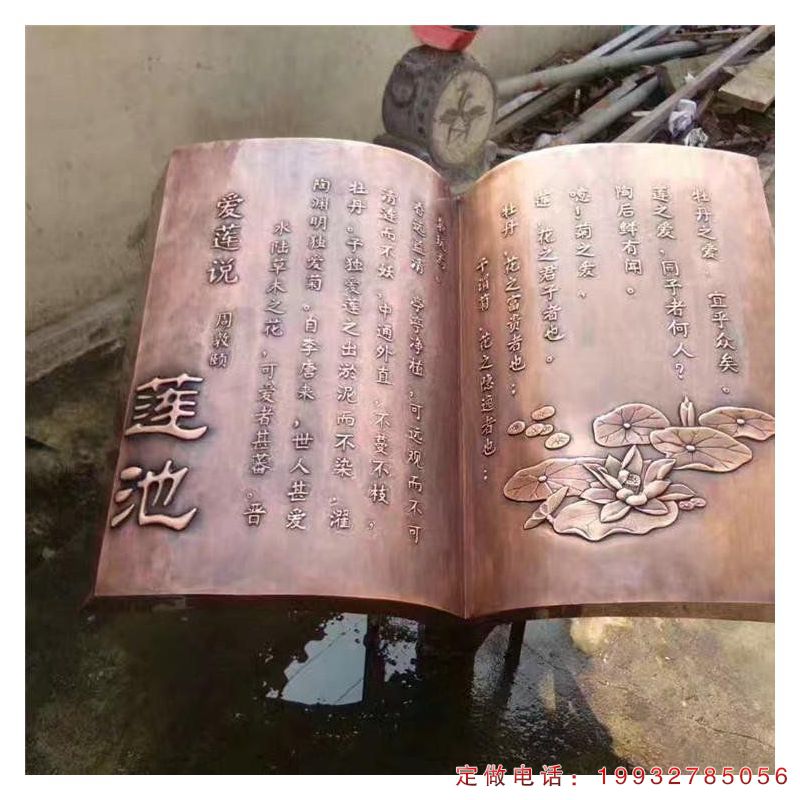 莲池
爱莲说
周敦颐
水陆草木之花，可爱者甚蕃。晋
陶渊明独爱菊。自李唐来，世人甚爱
牡丹。子独爱莲之出淤泥而不染，濯
清莲而不妖，中通外直，不蔓不枝，
香远益清，净植，可远观而不可
菊，花之隐逸者也；
牡丹，花之富贵者也；
莲，花之君子者也。
噫！菊之爱，
陶后鲜有闻。
莲之爱，同子者何人？
牡丹之爱，宜乎众矣。
定做电话：19932785056